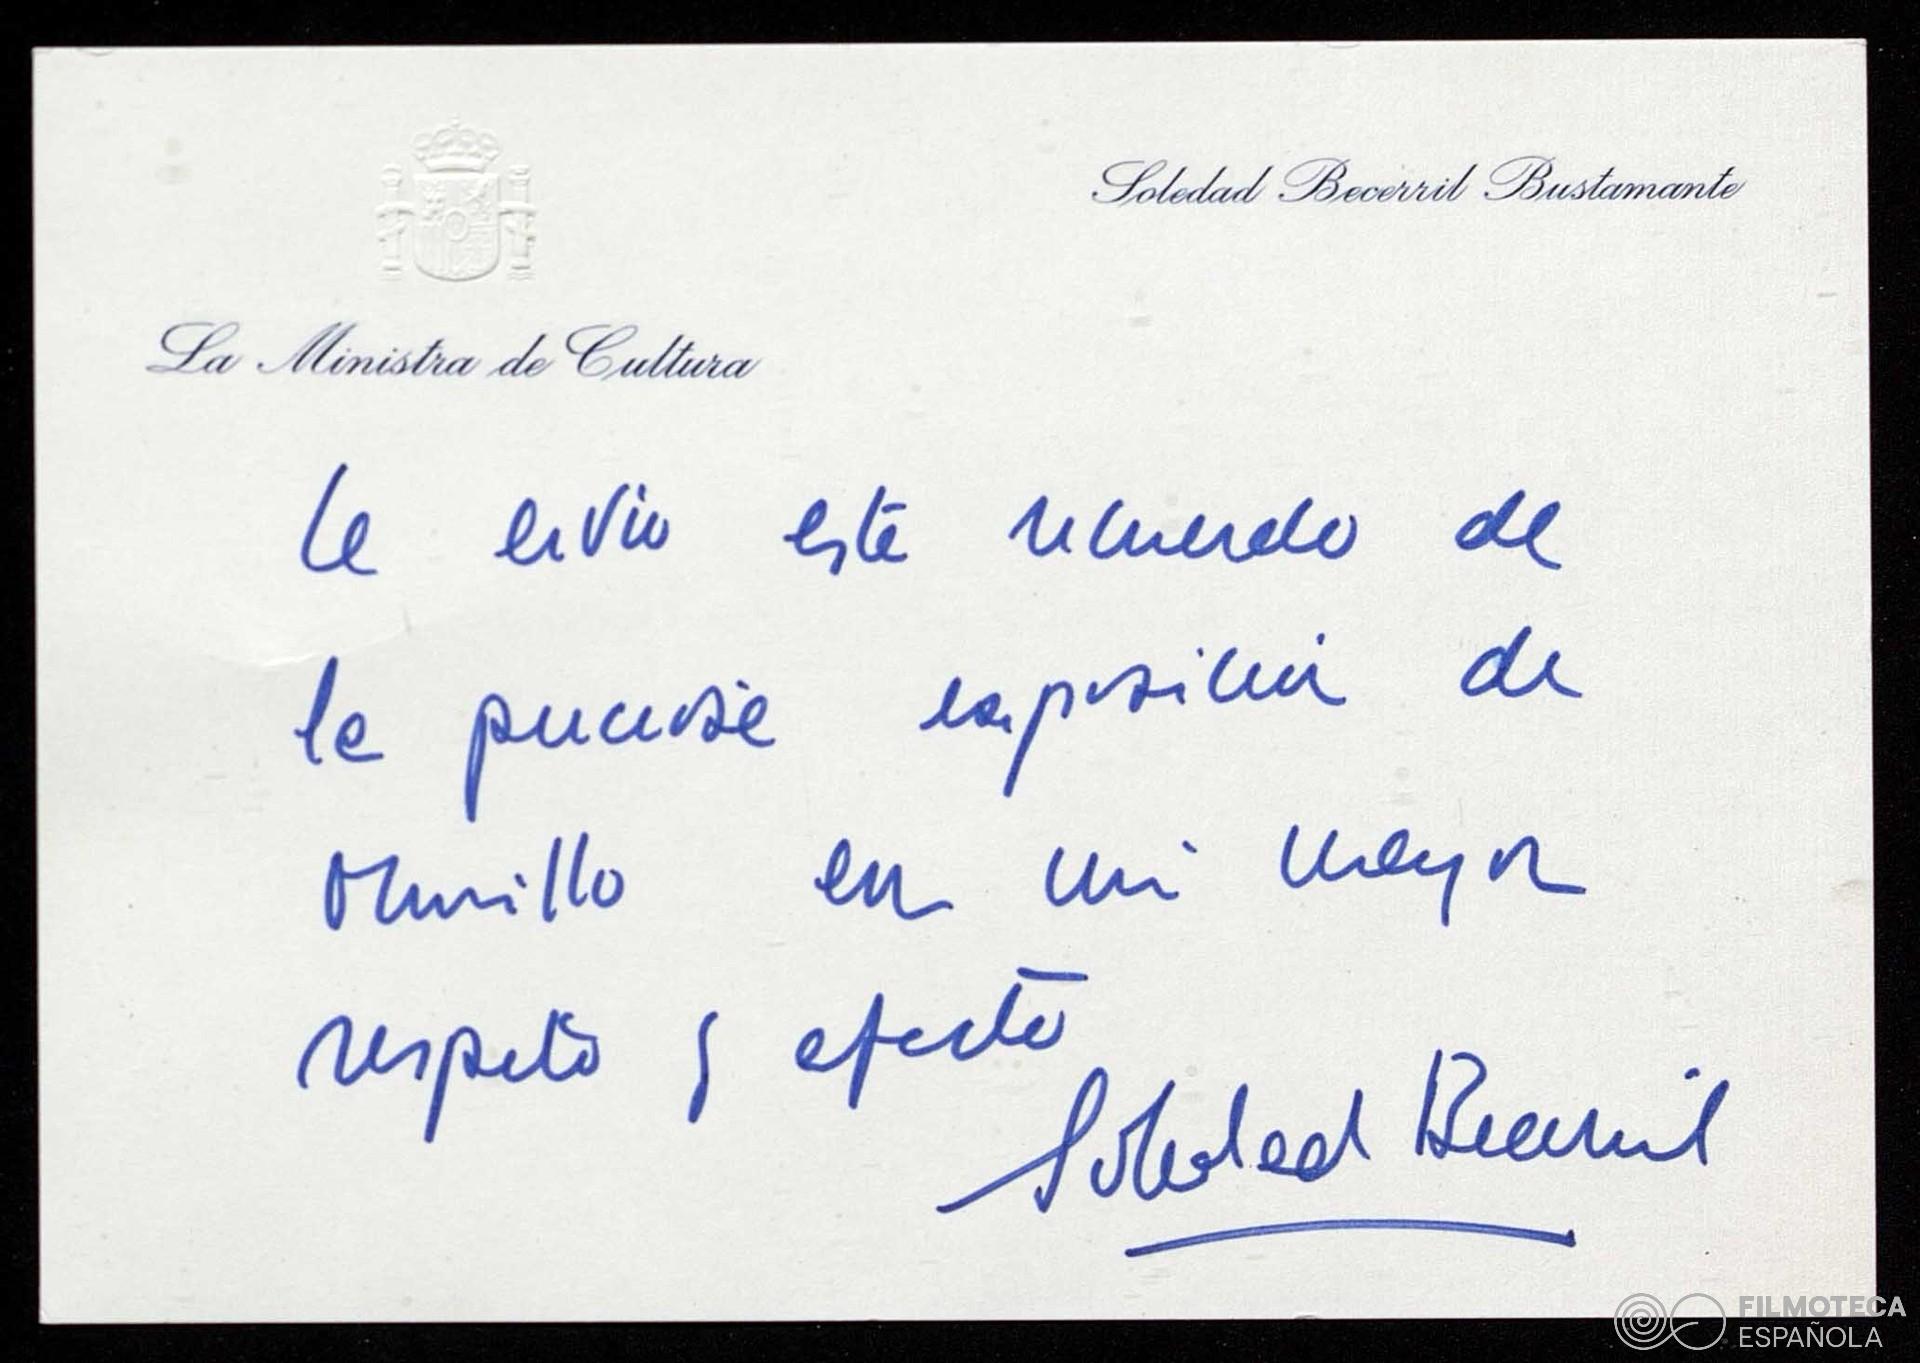 Soledad Becerril Bustamante
La Ministra de Cultura
Le envío este recuerdo de
la preciosa exposición de
Murillo con mi mayor
respeto y afecto
Soledad Becerril
FILMOTECA
ESPAÑOLA